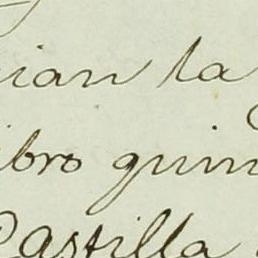 ian la
ibro quin
Castilla